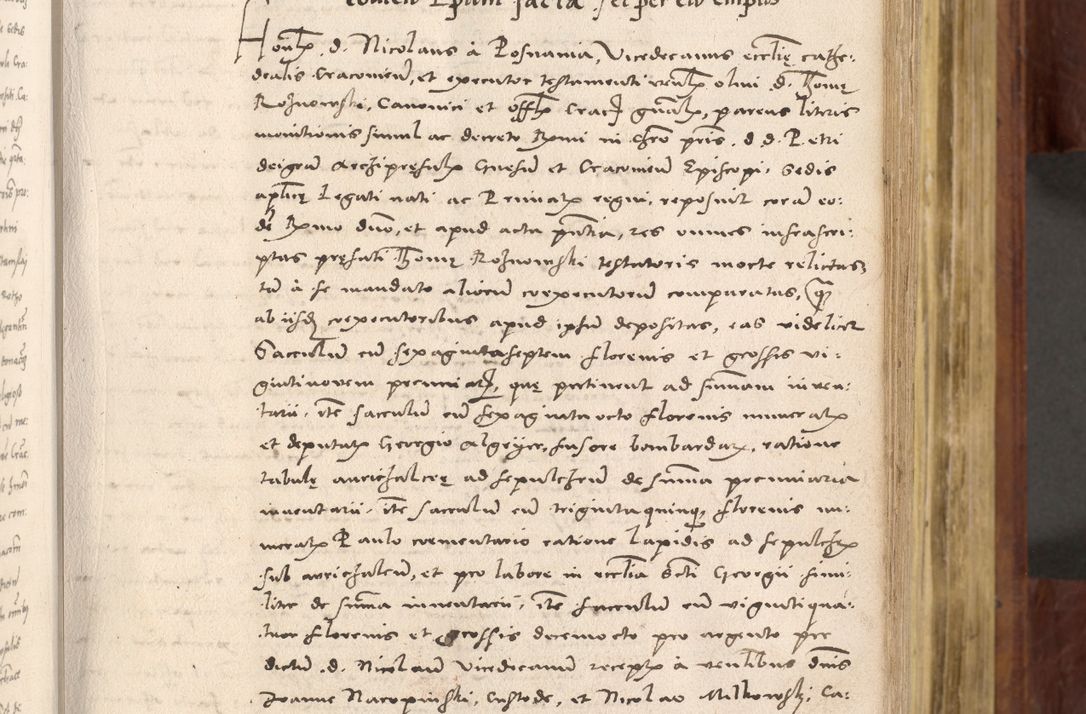 coram Rpum facta, et per eu emptis
Honlis .d. Nicolaus à Posnania, Vicedecanus eccłię cathe-
dralis Cracovien̄, et executor testamenti venłis olim .d. Thomę
Rożnowski, Canonici et offłis Crac̄ gn̄alis, parens literis
monitionis simul ac decreto Rm̄i in Chr̄o pr̄is .d d. Petri
dei gr̄a Archipręsulis Gnesn̄ et Cracovien̄ Episcopi, Sedis
ap̄licę Legati nati ac Primatis regni, reposuit corā eo-
dē Rm̄o dn̄o, et apud acta pn̄tia, res omnes infrascri-
ptas pręfati Thomę Rożnowski testatoris morte relictas
tā à se mandato aliorū coexecutorū comparatas, q̄
ab iisdē coexecutoribus apud ipsū depositas, eas videlicet
Sacculum cū sexagintaseptem florenis et grossis vi-
gintinovem pecuniar̄, quę pertinent ad sum̄am inven-
tarii, itē sacculū cū sexagintaocto florenis numeratis
et deputatis Georgio Algeyer, fusore bombardar̄, ratione
tabulę aurichalceę ad sepulchrū de sum̄a pecuniaria
inventarii, itē sacculū cū trigintaquinq̄ florenis nu-
meratis Paulo cœmentario ratione lapidis ad sepulchr̄
sub aurichalcū, et pro labore in eccłia S̄cti Georgii simi-
liter de sum̄a inventarii, itē sacculū cū vigintiqua-
tuor florenis et grossis decemocto pro argento per
dictū .d. Nicolaū Vicedecanū receptis à ven̄libus dn̄is
Joanne Nacopinski, Custode, et Nicolao Milkowski, Ca-